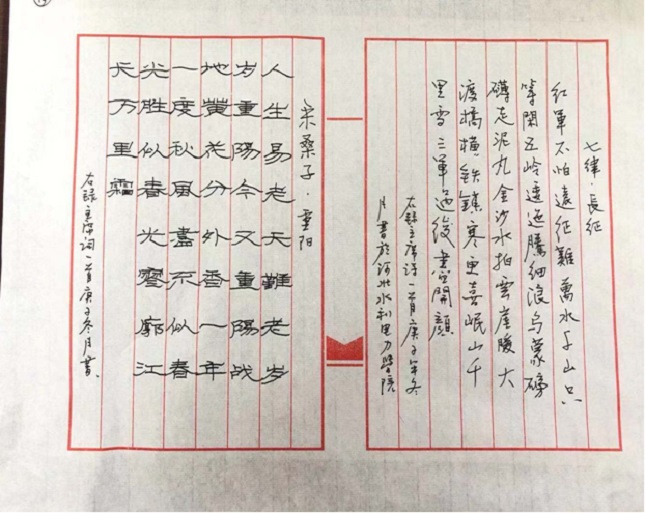 七律·長征
紅軍不怕遠征難萬水千山只
等閑五岭逶迤騰細浪烏蒙磅
礴走泥丸金沙水拍雲崖暖大
渡橋橫鉄鎖寒更喜岷山千
里雪三軍過後盡開顏
右錄主席詩一首庚子年冬
月書於河北水利電力學院
采桑子·重阳
人生易老天難老岁
岁重陽今又重陽战
地黄花分外香一年
一度秋風勁不似春
光胜似春光寥廓江
天万里霜
右録主席词一首庚子冬月書